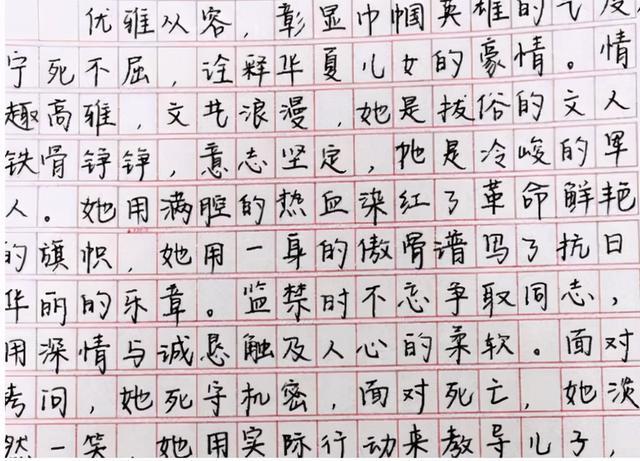 优雅从容，彰显巾帼英雄的气度
宁死不屈，诠释华夏儿女的豪情。情
趣高雅，文艺浪漫，她是拔俗的文人
铁骨铮铮，意志坚定，她是冷峻的军
人。她用满腔的热血染红了革命鲜艳
的旗帜，她用一身的傲骨谱写了抗日
华丽的乐章。监禁时不忘争取同志，
用深情与诚恳触及人心的柔软。面对
拷问，她死守机密，面对死亡，她淡
然一笑，她用实际行动来教导儿子，